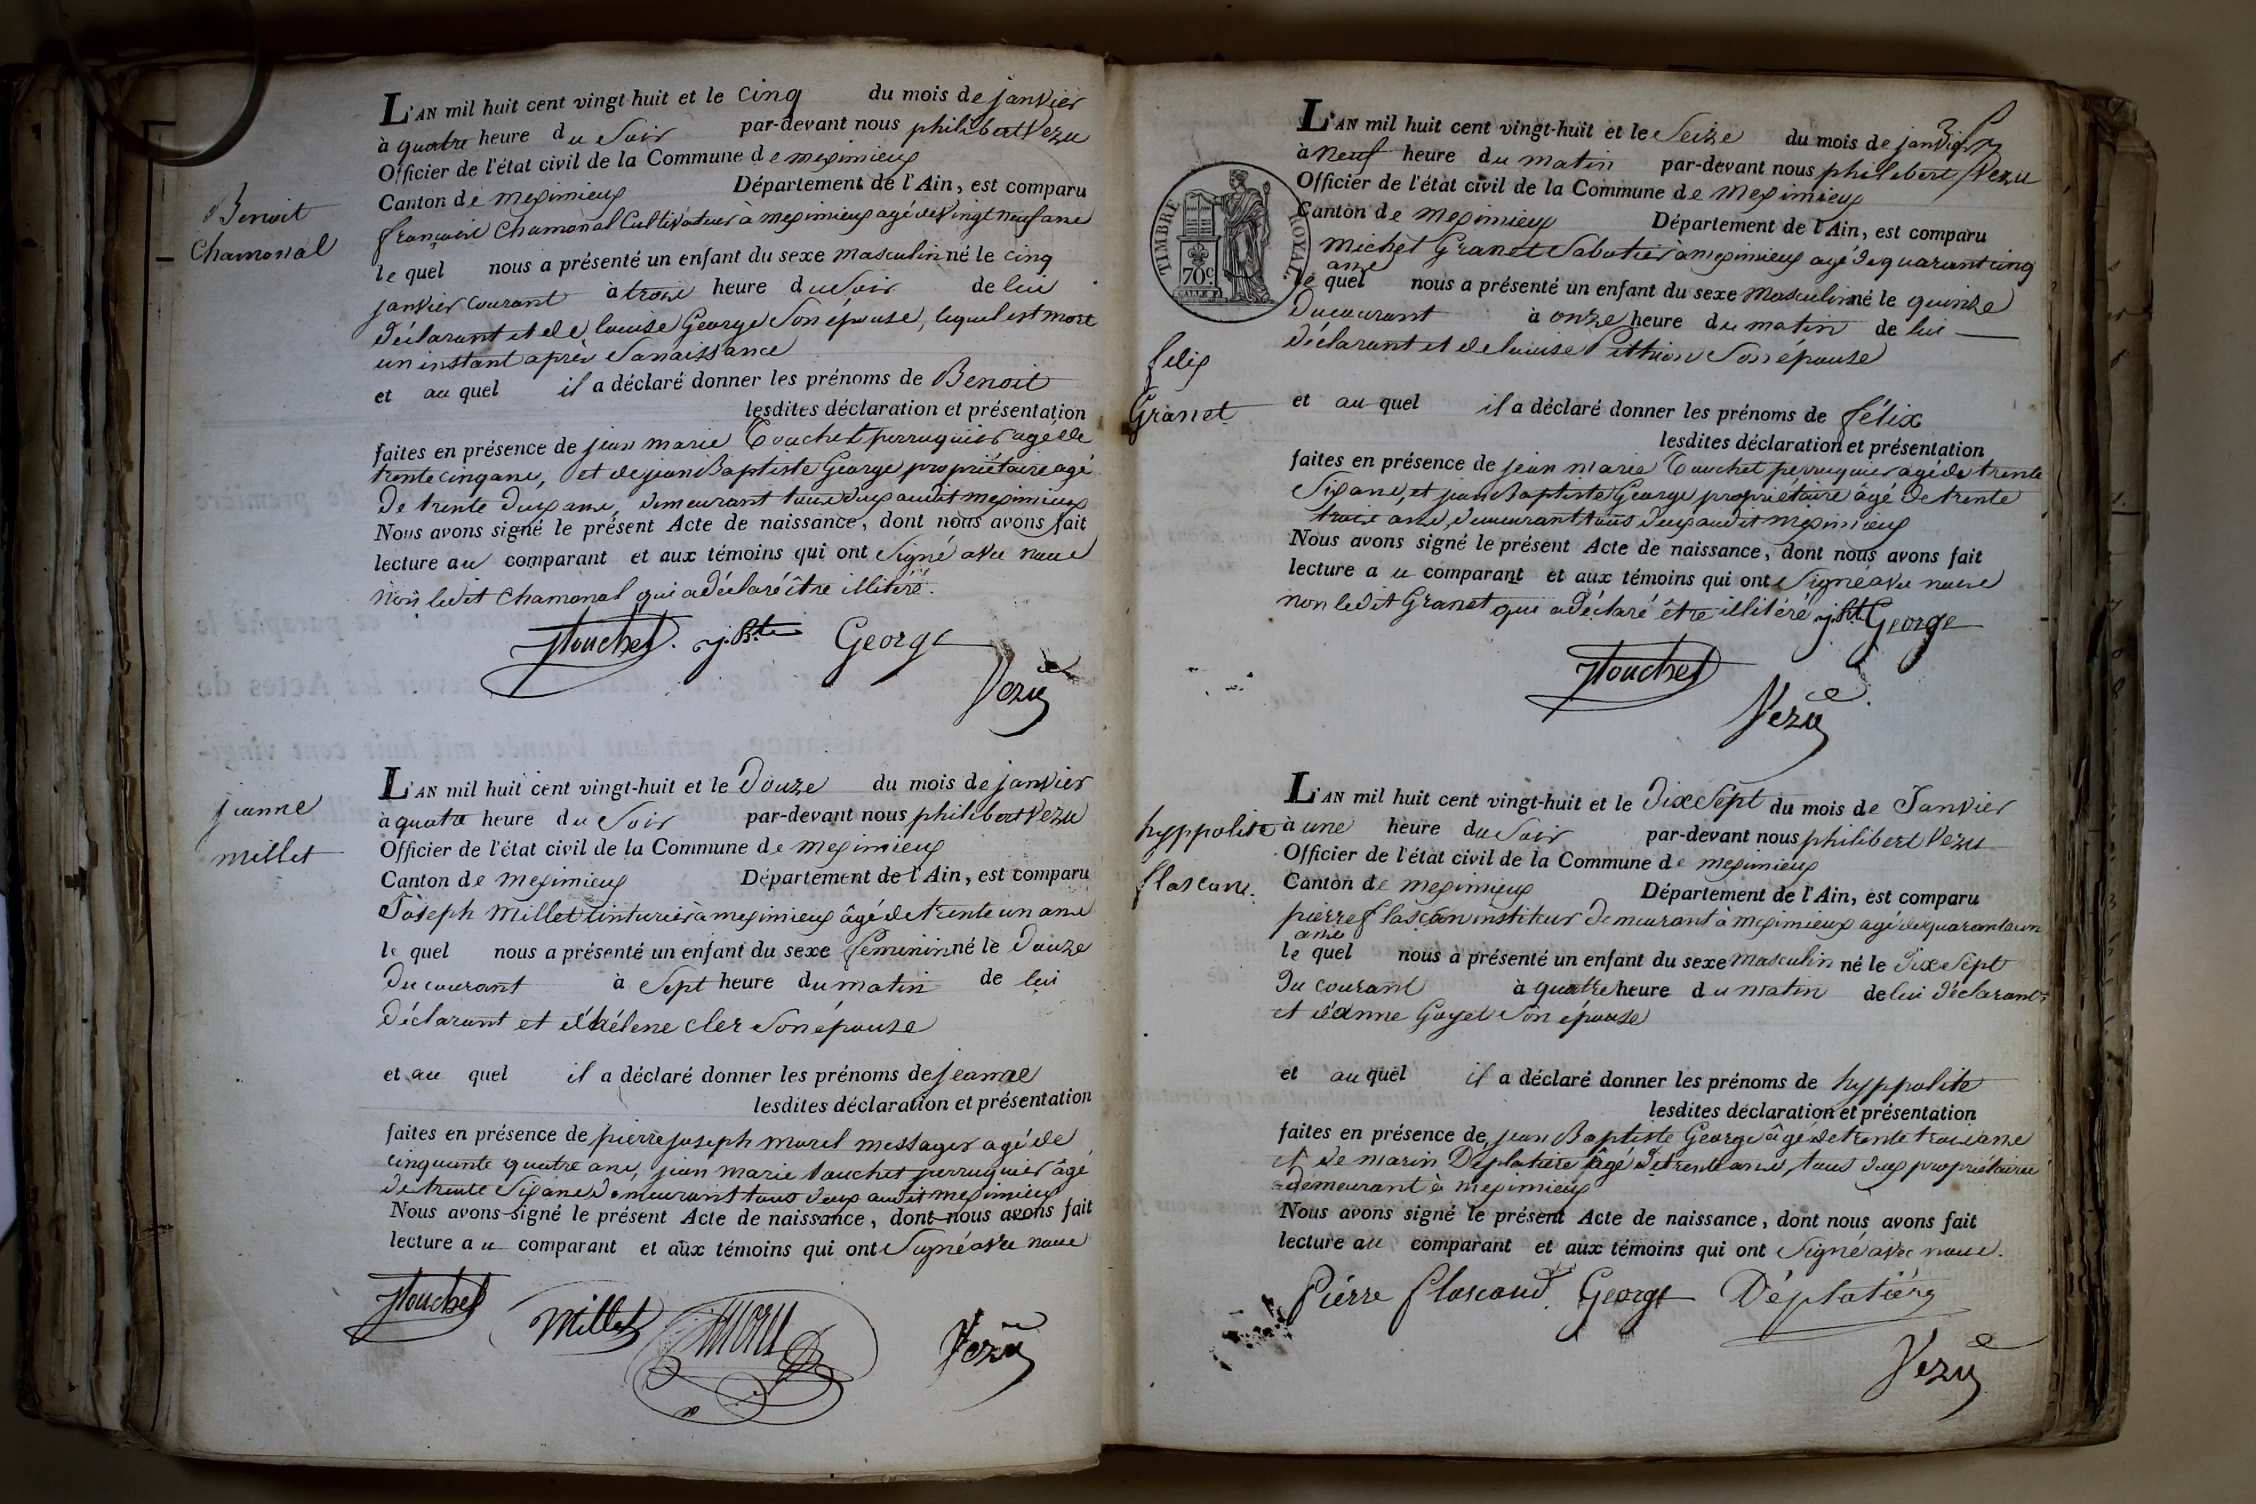 Benoit
Chamonal
L'AN mil huit cent vingt-huit et le cinq du mois de janvier
à quatre heure du Soir par-devant nous philibert Vezu
Officier de l'état civil de la Commune de meximieux
Canton de meximieux Département de l'Ain, est comparu
françois Chamonal Cultivateur à meximieux agé de Vingt neuf ans
le quel nous a présenté un enfant du sexe masculin né le cinq
janvier courant à trois heure du Soir de lui
déclarant et de louise George Son épouse, lequel est mort
un instant après Sa naissance
et au quel il a déclaré donner les prénoms de Benoit
lesdites déclaration et présentation
faites en présence de jean marie Touchet perruquier agé de
trente cinq ans, et de jean Baptiste George propriétaire agé
de trente deux ans, demeurant tous deux audit meximieux
Nous avons signé le présent Acte de naissance, dont nous avons fait
lecture au comparant et aux témoins qui ont Signé avec nous
Non ledit Chamonal qui a déclaré être illitéré.
Touchet. j. Bte George
Vezu
jeanne
millet
L'AN mil huit cent vingt-huit et le Douze du mois de janvier
à quatre heure du Soir par-devant nous philibert Vezu
Officier de l'état civil de la Commune de meximieux
Canton de meximieux Département de l'Ain, est comparu
Joseph Millet tinturier à meximieux âgé de trente un ans
le quel nous a présenté un enfant du sexe féminin né le Douze
Du courant à Sept heure du matin de lui
Déclarant et d'hélene Cler Son épouse
et au quel il a déclaré donner les prénoms de jeanne
lesdites déclaration et présentation
faites en présence de pierre joseph morel messager agé de
cinquante quatre ans, jean marie touchet perruquier âgé
de trente Six ans Demeurant tous deux audit meximieux
Nous avons signé le présent Acte de naissance, dont nous avons fait
lecture au comparant et aux témoins qui ont Signé avec nous
Touchet Millet Morel Vezu
TIMBRE ROYAL
70c
felix
Granet
L'AN mil huit cent vingt-huit et le Seize du mois de janvier
à Neuf heure du matin par-devant nous philibert Vezu
Officier de l'état civil de la Commune de Meximieux
Canton de meximieux Département de l'Ain, est comparu
Michel Granet Sabotier à meximieux agé de quarant cinq
ans
le quel nous a présenté un enfant du sexe Masculin né le quinze
Du courant à onze heure du matin de lui
déclarant et de louise Pithion Son épouse
et au quel il a déclaré donner les prénoms de félix
lesdites déclaration et présentation
faites en présence de jean marie Touchet perruquier agé de trente
Six ans, et jean Baptiste George propriétaire âgé de trente
trois ans, demeurant tous deux audit meximieux
Nous avons signé le présent Acte de naissance, dont nous avons fait
lecture au comparant et aux témoins qui ont Signé avec nous
non ledit Granet qui a déclaré être illitéré j. Bt George
Touchet
Vezu
hyppolite
flascan.
L'AN mil huit cent vingt-huit et le Dix Sept du mois de Janvier
à une heure du Soir par-devant nous philibert Vezu
Officier de l'état civil de la Commune de meximieux
Canton de meximieux Département de l'Ain, est comparu
pierre flascan institeur Demeurant à meximieux agé de quarante un
ans
le quel nous a présenté un enfant du sexe masculin né le Dix Sept
Du courant à quatre heure du matin de lui déclarant
et d'anne Goyet Son épouse
et au quel il a déclaré donner les prénoms de hyppolite
lesdites déclaration et présentation
faites en présence de jean Baptiste George âgé de trente trois ans
et de marin Deplatière âgé de trente ans, tous deux propriétaires
demeurant à meximieux
Nous avons signé le présent Acte de naissance, dont nous avons fait
lecture au comparant et aux témoins qui ont Signé avec nous.
Piérre flascand George Déplatière
Vezu